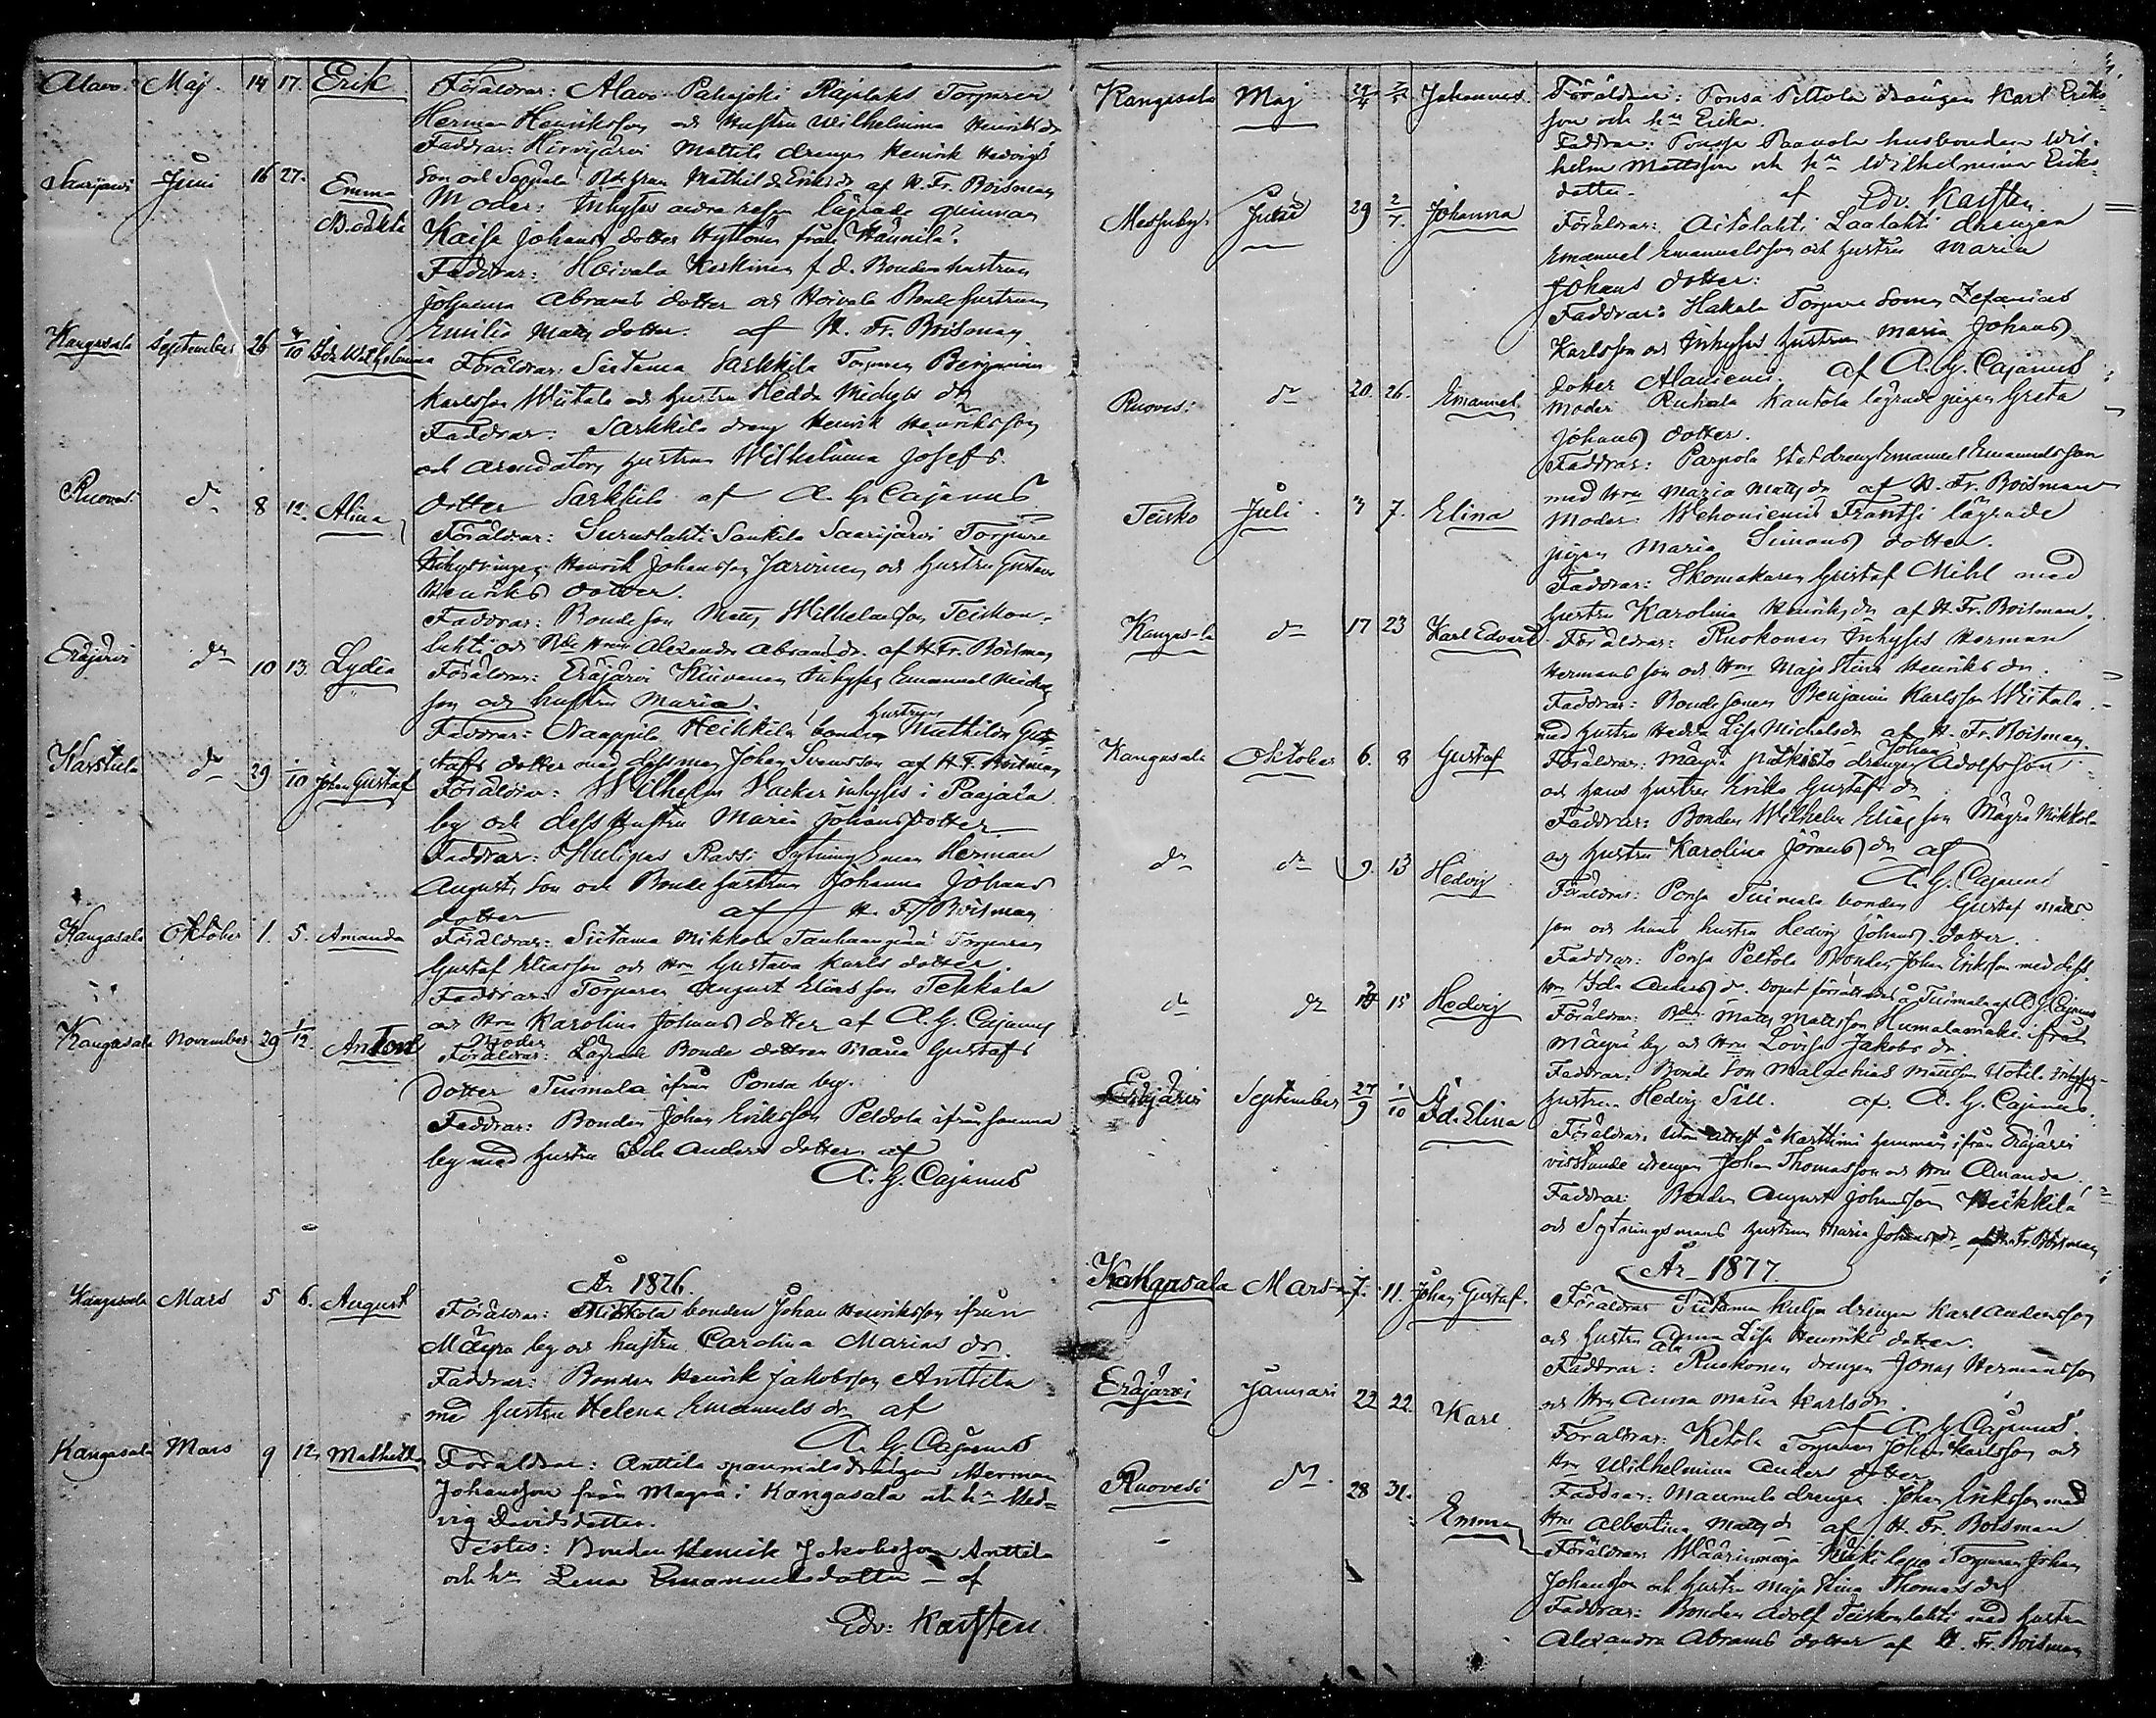 Alavo. Maj. 14 17. Erik Föräldrar: Alavo Pahajoki Rajalaks Torparen
Herman Henriksson och Hustru Wilhelmina Henriks dr
Faddrar: Hirvijärvi Mattila drengen Henrik Hedvigs
Saarijärvi Juni 16 27. Emma son och Seppälä Bde frun Mathilda Eriks dr af H. Fr. Boisman
Moder: Inhyses andra resan lägrade qvinnan
B.odkta Kaisa Johans dotter Hyttönen från Hännilä.
Faddrar: Hoivala Keskinen f. d. Bonden hustrun
Johanna Abrams dotter och Hoivala Bonde hustrun
Emilia Matts dotter. af H. Fr. Boisman
Kangasala September 26 4/10 Ida Wilhelmina Föräldrar: Siitama Sarkkila Torparen Benjamin
Karlsson Wiitala och hustru Hedda Michels dr
Faddrar: Sarkkila dreng Henrik Henriksson
och arendatorn hustrun Wilhelmina Josefs
Ruoves: dr 8 12. Alina dotter Sarkkila af A. G. Cajanus
Föräldrar: Surustahti Sankila Saarijärvi Torpare
Inhysingen Henrik Johansson Jarvinen och hustru Gustava
Henriks dotter.
Faddrar: Bondeson Matts Wilhelmsson Teiskon-
lahti och Bde Hru Alexandra Abrams dr. af H. Fr. Boisman
Eräjärvi dr 10 13. Lydia Föräldrar: Eräjärvi Kiuvanen Inhyses Emanuel Michels
son och hustru Maria.
Faddrar: Naappila Heikkilä bonden hustrun Mathilda Gus-
Karstula dr 29 1/10 Johan Gustaf tafs dotter med dess man Johan Svensson af H. F. Boisman
Föräldrar: Wilhelm Wacker inhyses i Paajala
by och dess hustru Maria Johansdotter
Faddrar: Huligas Rassi Sytningsman Herman
Augusts son och Bonde hustrun Johanna Johans
dotter af H. Fr. Boisman
Kangasala Oktober 1. 5. Amanda Föräldrar: Siitama Mikkola Tanhuanpää Torparen
Gustaf Eliasson och Hru Gustava Karls dotter.
Faddrar: Torparen August Eliasson Tekkala
och Hru Karolina Johans dotter af A. G. Cajanus
Kangasala November 29 1/12. Anton Moder
Föräldrar: Lägrade Bonde dottern Maria Gustafs
dotter Tuimala ifrån Ponsa by.
Faddrar: Bonden Johan Eriksson Peldola ifrån samma
by med hustru Ida Anders dotter af
A. G. Cajanus
År 1876.
Kangasala Mars 5 6. August Föräldrar: Mikkola bonden Johan Henriksson ifrån
Mäyrä by och hustru Carolina Marias dr.
Faddrar: Bonden Henrik Jakobsson Anttila
med hustru Helena Emanuels dr af
A. G. Cajanus
Kangasala Mars 9 12. Mathilda Föräldrar: Anttila spanmålsdrängen Herman
Johansson från Mäyrä i Kangasala och hru Hed-
vig Davidsdotter.
Testes: Bonden Henrik Jakobsson Anttila
och hru Lena Emanuelsdotter - af
Edv: Karsten.
Kangasala Maj 29/4 7/5 Johannes Föräldrar: Ponsa Peltola drängen Karl Eriks-
son och hru Erika.
Faddrar: Ponsa Paavola husbonden Wil-
helm Mattsson och hru Wilhelmina Eriks-
dotter. af Edv. Karsten
Messuby: Juni 29 2/7. Johanna Föräldrar: Aitolahti Laalahti drengen
Emanuel Emanuelsson och hustru Maria
Johans dotter:
Faddrar: Hakala Torpare sonen Zefanias
Karlsson och Inhyses hustrun Maria Johans
dotter Alanienie. af A. G. Cajanus
Ruoves: dr 20. 26. Emanuel Moder: Ruhala Kautola lägrade pigan Greta
Johans dotter.
Faddrar: Parpola Stat dreng Emanuel Emanuelsson
med Hru Maria Matts dr af H. Fr. Boisman
Teisko Juli 3 7. Elina Moder: Wehoniemis Frantsi lägrade
pigan Maria Simons dotter.
Faddrar: Skomakaren Gustaf Mihl med
hustru Karolina Henriks dr af H. Fr. Boisman.
Kangas-la dr 17 23 Karl Edvard Föräldrar: Ruokonen Inhyses Herman
Hermansson och Hru Maja Stina Henriks dr.
Faddrar: Bonde sonen Benjamin Karlsson Wiitala
med hustru Hedda Lisa Michelsdr af H. Fr. Boisman.
Kangasala Oktober 6. 8 Gustaf Föräldrar: Mäyrä Pitkisto drengen Johan Adolfsson
och hans hustru Erika Gustafs dr
Faddrar: Bonden Wilhelm Eliasson Mäyrä Mikkola
och hustru Karolina Jörans dr af
A. G. Cajanus
dr dr 9. 13 Hedvig Föräldrar: Ponsa Tuimala bonden Gustaf Matts-
son och hans hustru Hedvig Johans dotter.
Faddrar: Ponsa Peltola Bonden Johan Eriksson med dess
Hru Ida Anders dr. Dopet förrättades å Tuimala af A. G. Cajanus
dr dr 15 Hedvig Föräldrar: Bden Matts Mattsson Humalamäki ifrån
Mäyrä by och Hru Lovisa Jakobs dr.
Faddrar: Bonde son Malachias Mattsson Uotila Inhyses
hustrun Hedvig Sill. af. A. G. Cajanus.
Eräjärvi September 27/9 1/10 Ida Elina Föräldrar: utan attest å Karttimi hemman ifrån Eräjärvi
vistande drengen Johan Thomasson och Hru Amanda.
Faddrar: Bonden August Johansson Heikkilä
och Sytningsmans hustrun Maria Johansdr af H. Fr. Boisman
År 1877.
Kahgnsala Mars 7. 11. Johan Gustaf. Föräldrar Siitama Kulju drengen Karl Andersson
och hustru Anna Lisa Henriks dotter.
Faddrar: Ala Ruokonen drengen Jonas Hermansson
och Hru Anna Maria Karls dr.
af A. G. Cajanus.
Eräjärvi Januari 22 22. Karl Föräldrar: Ketola Torparen Johan Karlsson och
Hru Wilhelmina Anders dotter
Faddrar: Maunula drengen Johan Eriksson med
Hru Albertina Matts dr af H. Fr. Boisman
Ruovesi dr 28 31. Emma Föräldrar: Wäärinmaja Torparen Johan
Johansson och hustru Maja Stina Thomas dr
Faddrar: Bonden Adolf Teiskonlahti med hustru
Alexandra Abrams dotter af H. Fr. Boisman